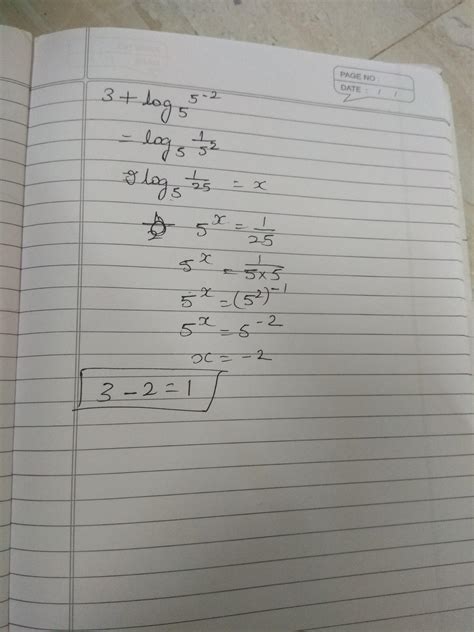 PAGE NO :
DATE : / /
3 + log₅ 5⁻²
= log₅ 1/5²
log₅ 1/25 = x
5ˣ = 1/25
5ˣ = 1/5×5
5ˣ = (5²)⁻¹
5ˣ = 5⁻²
x = -2
3 - 2 = 1